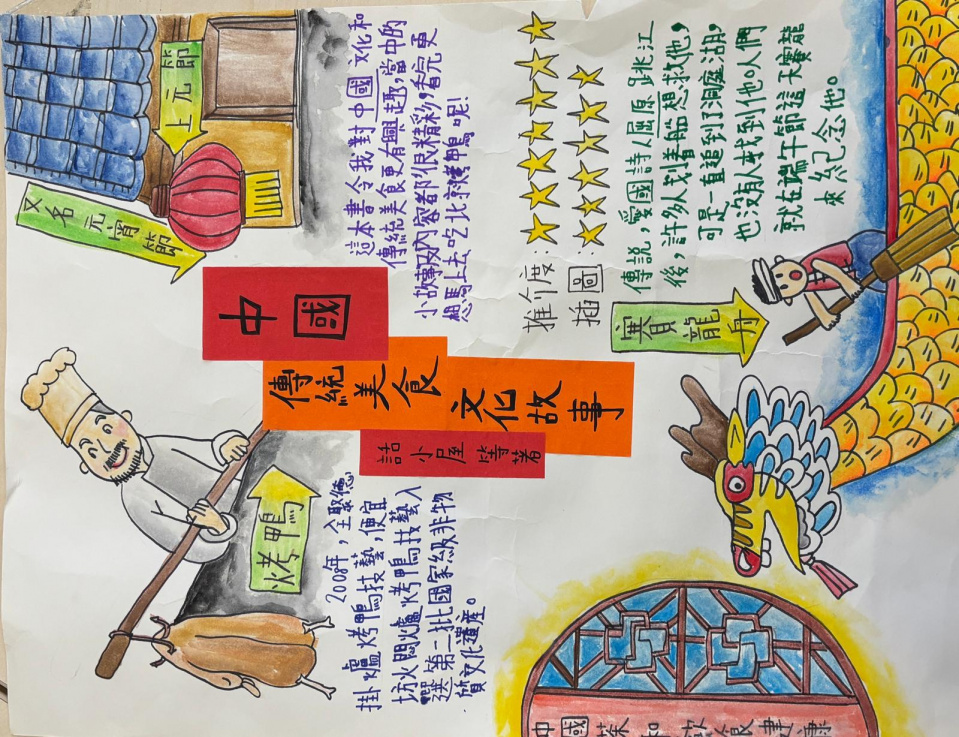 上元節
又名元宵節
這本書令我對中國文化和
傳統美食更有興趣,當中的
小故事及內容都很精彩,看完更
想馬上去吃北京烤鴨呢!
中國
傳統美食
文化故事
話小屋 等著
烤鴨
2008年,全聚德
掛爐烤鴨技藝,便宜
坊火悶爐烤鴨技藝入
選第二批國家級非物
質文化遺產。
推介度:
插圖:
賽龍舟
傳說,愛國詩人屈原跳江
後,許多人划着船想救他,
可是一直追到了洞庭湖,
也沒有人找到他。人們
就在端午節這天賽龍
來紀念他。
中國茶和飲食健康